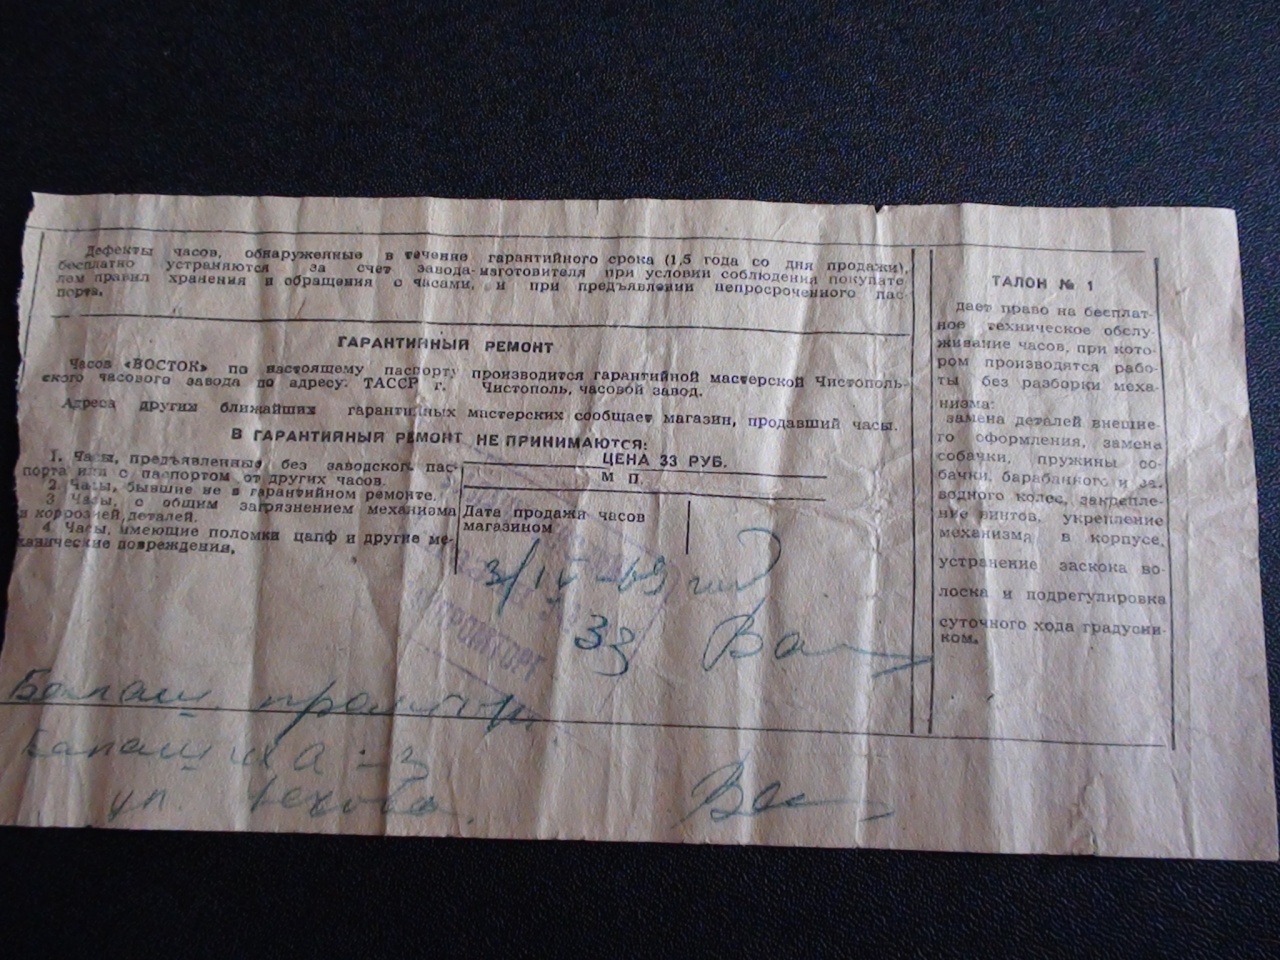 Дефекты часов, обнаруженные в течение гарантийного срока (1,5 года со дня продажи),
бесплатно устраняются за счет завода-изготовителя при условии соблюдения покупате
лем правил хранения и обращения с часами, и при предъявлении непросроченного пас-
порта.
ГАРАНТИЙНЫЙ РЕМОНТ
Часов «ВОСТОК» по настоящему паспорту производится гарантийной мастерской Чистополь-
ского часового завода по адресу: ТАССР г. Чистополь, часовой завод.
Адреса других ближайших гарантийных мастерских сообщает магазин, продавший часы.
В ГАРАНТИЙНЫЙ РЕМОНТ НЕ ПРИНИМАЮТСЯ:
1. Часы, предъявленные без заводского пас-
порта или с паспортом от других часов.
2. Часы, бывшие не в гарантийном ремонте.
3. Часы, с общим загрязнением механизма
и коррозией деталей.
4. Часы, имеющие поломки цапф и другие ме-
ханические повреждения.
ЦЕНА 33 РУБ.
М П.
Дата продажи часов
магазином
3/IV-69 год
33
ПРОМТОРГ
ул. Чехова
ТАЛОН № 1
дает право на бесплат-
ное техническое обслу-
живание часов, при кото-
ром производятся рабо-
ты без разборки меха-
низма:
замена деталей внешне-
го оформления, замена
собачки, пружины со-
бачки, барабанного и за-
водного колес, закрепле-
ние винтов, укрепление
механизма в корпусе,
устранение заскока во-
лоска и подрегулировка
суточного хода градусни-
ком.